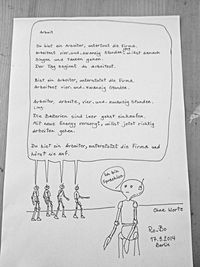 Arbeit
Du bist ein Arbeiter, unterstützt die Firma,
arbeitest vier und zwanzig Stunden, willst danach
Singen und Tanzen gehen.
Der Tag beginnt du arbeitest.
Bist ein Arbeiter, unterstützt die Firma.
Arbeitest vier und zwanzig Stunden.
Arbeiter, arbeite, vier und zwanzig Stunden
lang
Die Batterien sind leer gehst einkaufen.
Mit neuer Energie versorgt, willst jetzt richtig
arbeiten gehen.
Du bist ein Arbeiter, unterstützt die Firma und
hörst nie auf.
Ich bin
Sprachlos
Ohne Worte
Ro.Bo
17.9.2014
Berlin